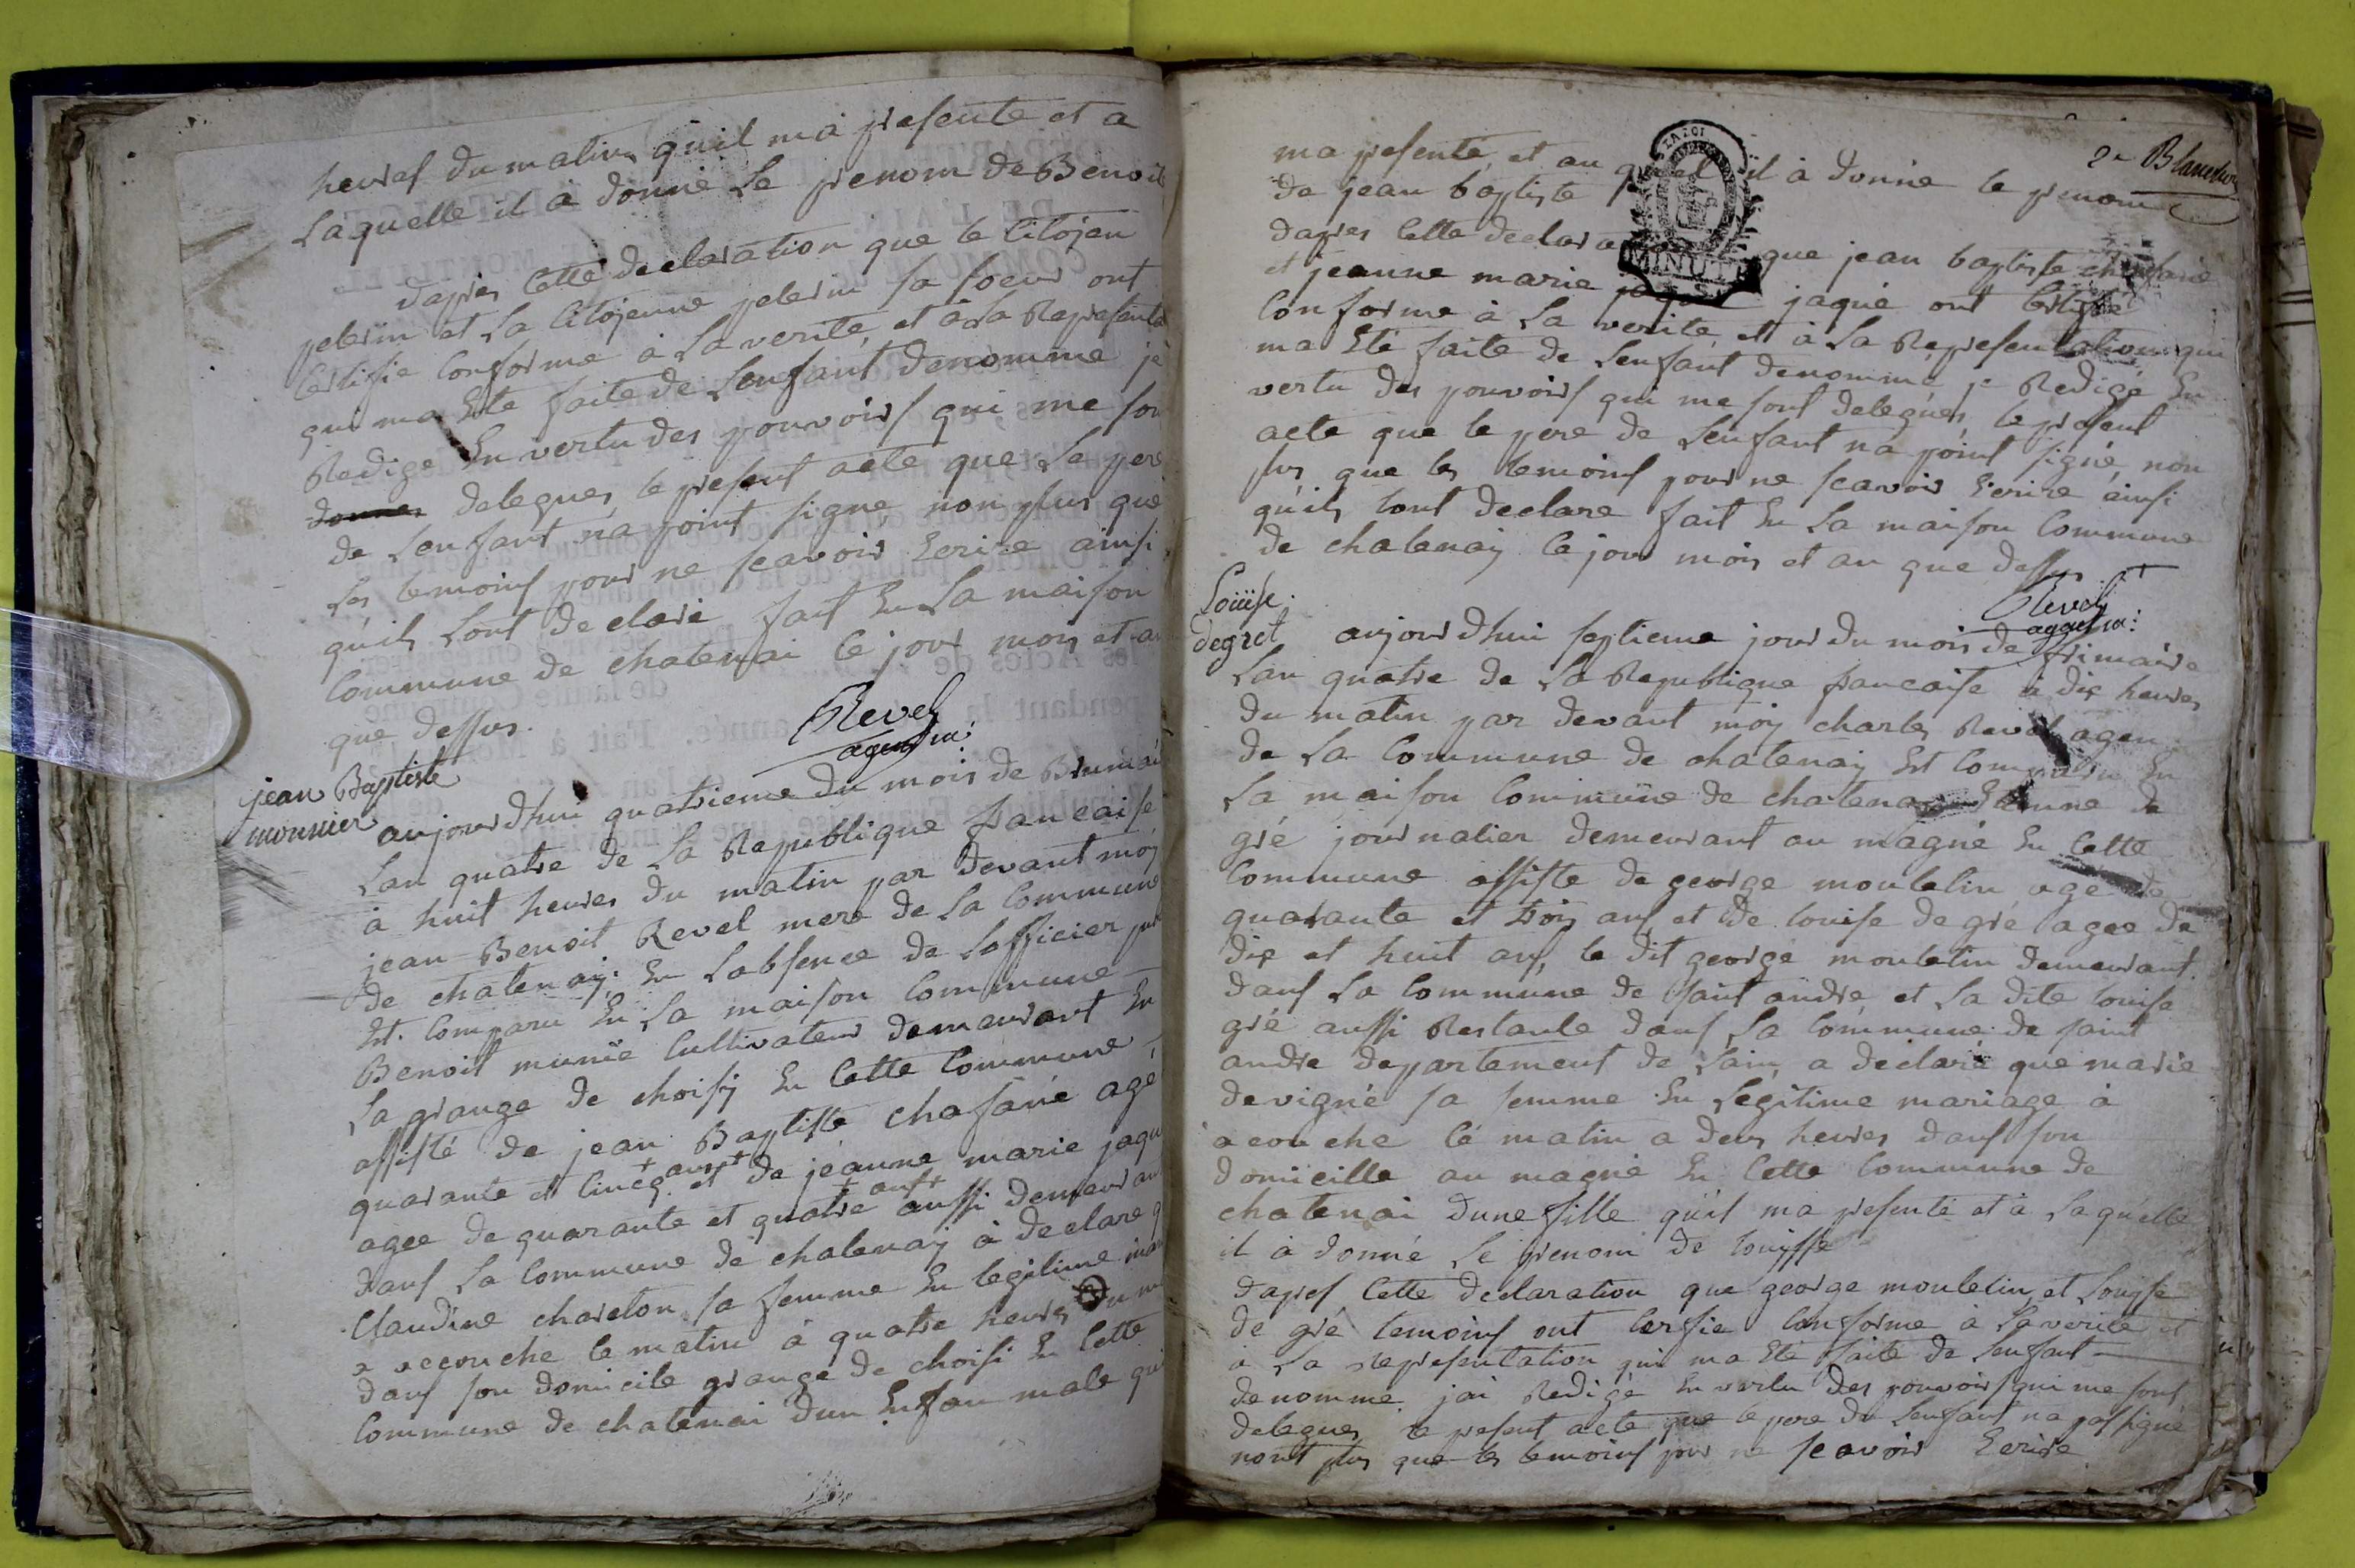 heures du matin, quil ma presente et a
Laquelle il à donné Le prenom de Benoit
dapres Cette declaration que le Citojen
pelerin et La Citojenne pelerin sa soeur ont
Certifie Conforme à La verite, et à La Representa
qui ma Ete faite de Lenfant denomme je
Redige En vertu des pouvoirs qui me son
delegues, le present acte que Le pere
de Lenfant na point signe, non plus que
Les temoins pour ne scavoir Ecrire ainsi
quils Lont declaré fait En La maison
Commune de chatenai le jour mois et an
que dessus.
Revel
agent m:
jean Baptiste
monnier
aujourdhui quatrieme du mois de Brumai
Lan quatre de La Republique francaise
à huit heures du matin par devant moy
jean Benoit Revel mere de La Commune
de chatenaÿ: En Labsence de Lofficier pub
Est. Comparu En La maison Commune
Benoit munié Cultivateur demeurant En
La grange de choisÿ En Cette Commune
assisté de jean Baptiste chafarié agé
quarante et Cincq + ans + et de jeanne marie jaqu
agee de quarante et quatre + ans + aussi demeurant
dans La Commune de chatenaÿ à declare q
Claudine chareton sa femme En legitime ma
a accouche le matin à quatre heures
dans son domicile grange de choisi En Cette
Commune de chatenai dun Enfan male qui
2e Blan
ma presenté, et au quel il à donné le prenom
de jean baptiste
dapres Cette declara que jean baptiste chafarie
et jeanne marie jaquié ont Certifié
Conforme à La verite, et à La Representation qui
ma Eté faite de Lenfant denommé, je Redigé En
vertu des pouvoirs qui me sont delegués, le present
acte que le pere de Lenfant na point signé, non
plus que les temoins pour ne scavoir Ecrire ainsi
quils Lont declare fait En La maison Commune
de chatenaÿ le jour mois et an que dessus
Revel
agent m:
Loüise
degret
aujourdhui septieme jour du mois de frimaire
Lan quatre de La Republique francaise à dix heures
du matin par devant moÿ charles Revel agen
de La Commune de chatenaÿ Est Comparu En
La maison Commune de chatenaÿ Etienne de
gré journalier demeurant au magné En Cette
Commune assiste de george moutelin age de
quarante et trois ans, et de louise de gré agee de
dix et huit ans, le dit george moutelin demeurant
dans La Commune de saint andre, et La dite louise
gré aussi Restante dans La Commune de saint
andre departement de Lain, a declaré que marie
devigné sa femme En Legitime mariage à
acouche le matin a deux heures dans son
domicille au magné En Cette Commune de
chatenai dune fille quil ma presenté et à Laquelle
il à donné Le prenom de louisse
dapres Cette declaration que george moutelin, et Louisse
de gré temoins ont Cerfie Conforme à La verité et
à La representation qui ma Eté faite de Lenfant
denommé jai Redigé En vertu des pouvoirs qui me sont
delegues le present acte que le pere de Lenfant na pas signé
nont plus que les temoins pour ne scavoir Ecrire
MINUTE